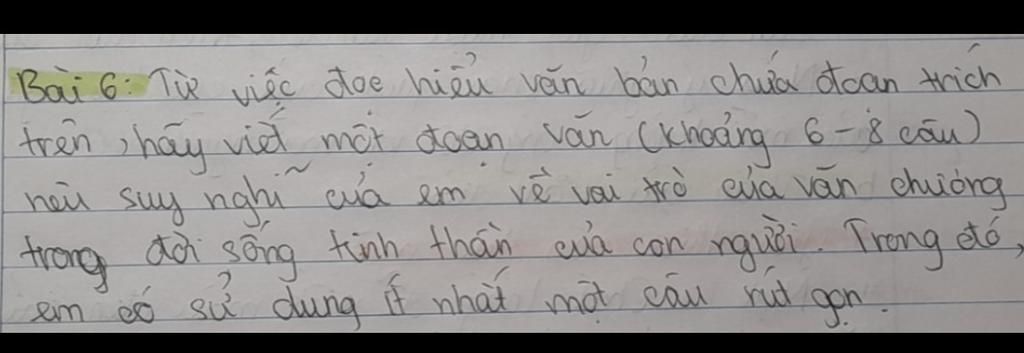 Bài 6: Từ việc đọc hiểu văn bản chứa đoạn trích
trên, hãy viết một đoạn văn (khoảng 6-8 câu)
nêu suy nghĩ của em về vai trò của văn chương
trong đời sống tinh thần của con người. Trong đó,
em có sử dụng ít nhất một câu rút gọn.